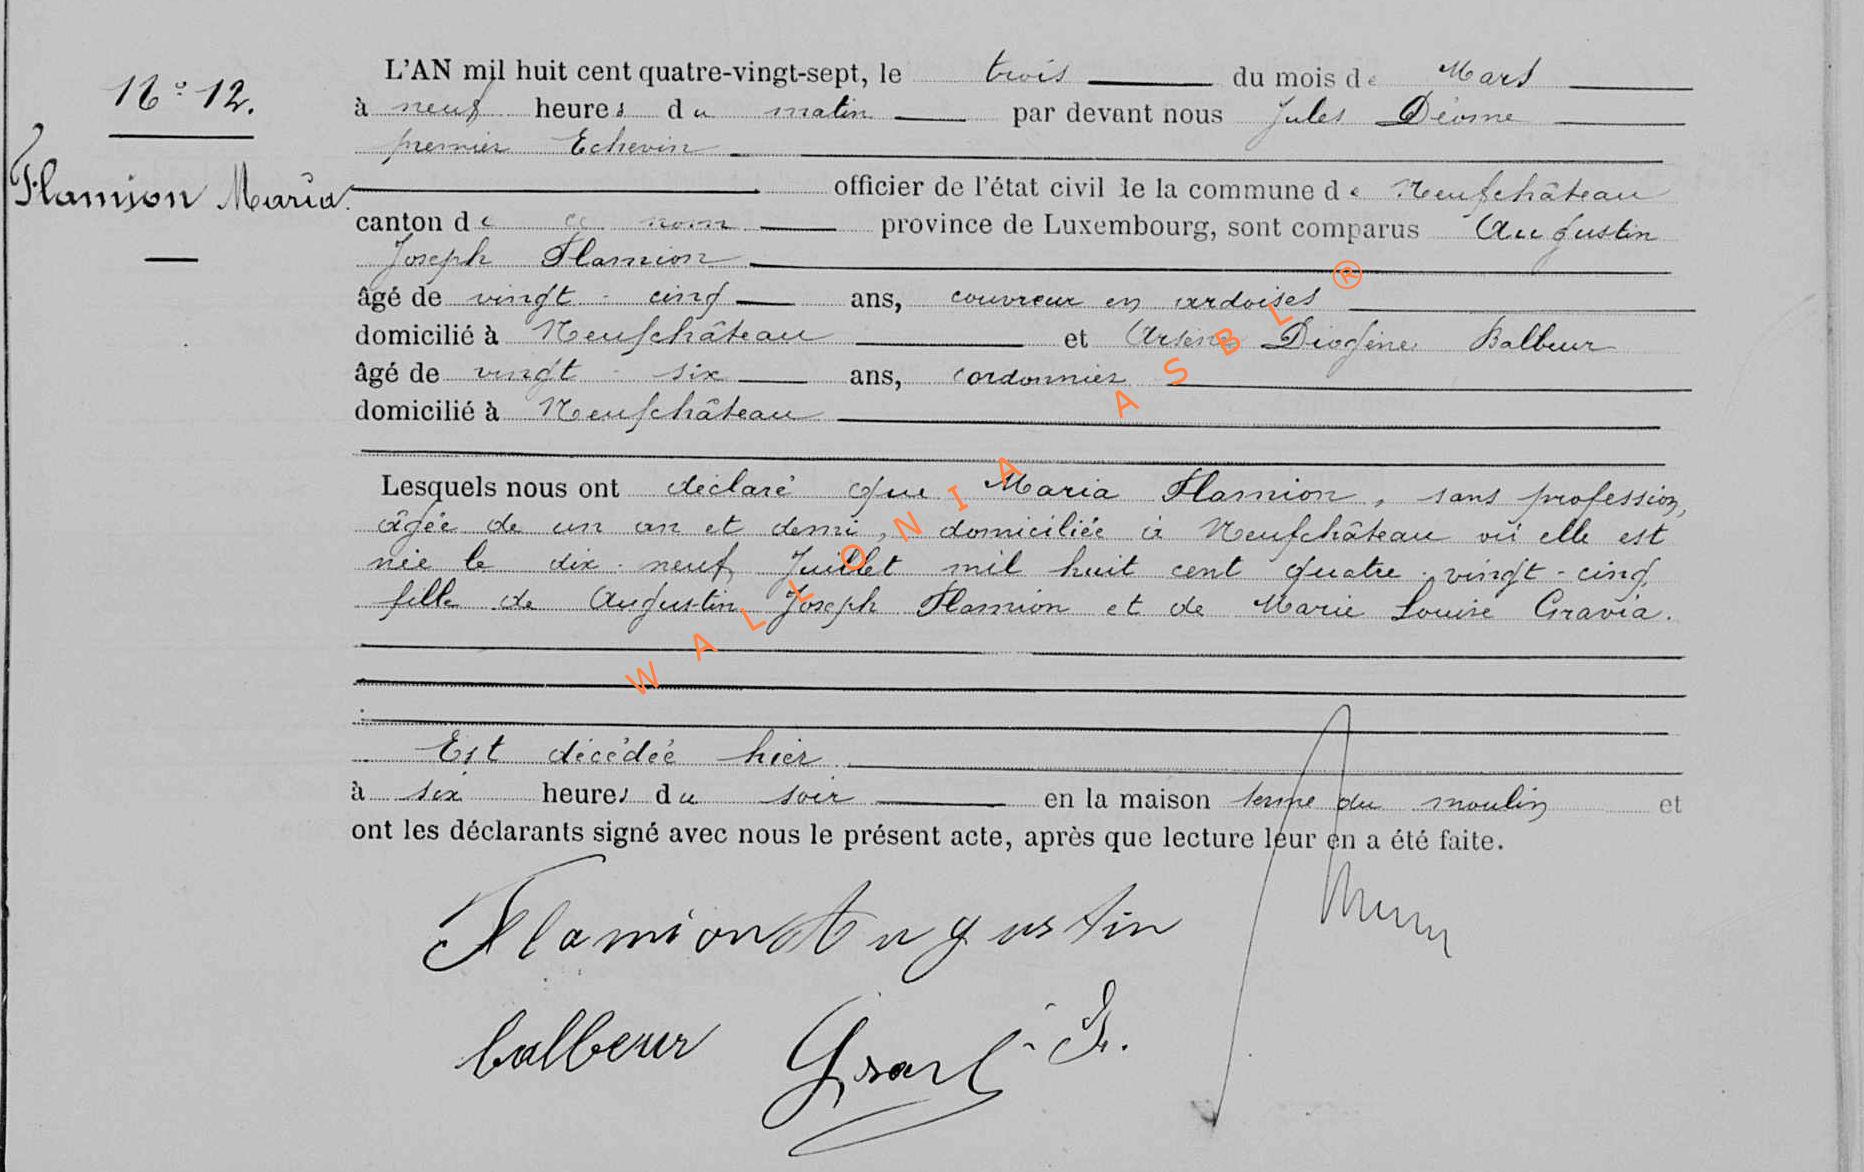 N° 12.
Flamion Maria.
L'AN mil huit cent quatre-vingt-sept, le trois du mois de Mars
à neuf heures du matin par devant nous Jules Déome
premier Echevin
officier de l'état civil de la commune de Neufchâteau
canton de ce nom province de Luxembourg, sont comparus Augustin
Joseph Flamion
âgé de vingt-cinq ans, couvreur en ardoises
domicilié à Neufchâteau et Arsène Diogène Balbeur
âgé de vingt-six ans, cordonnier
domicilié à Neufchâteau
Lesquels nous ont déclaré que Maria Flamion, sans profession,
âgée de un an et demi, domiciliée à Neufchâteau où elle est
née le dix-neuf Juillet mil huit cent quatre-vingt-cinq,
fille de Augustin Joseph Flamion et de Marie Louise Gravia.
Est décédée hier
à six heures du soir en la maison sienne du moulin et
ont les déclarants signé avec nous le présent acte, après que lecture leur en a été faite.
Flamion Augustin
balbeur
WALLONIA ASBL ®